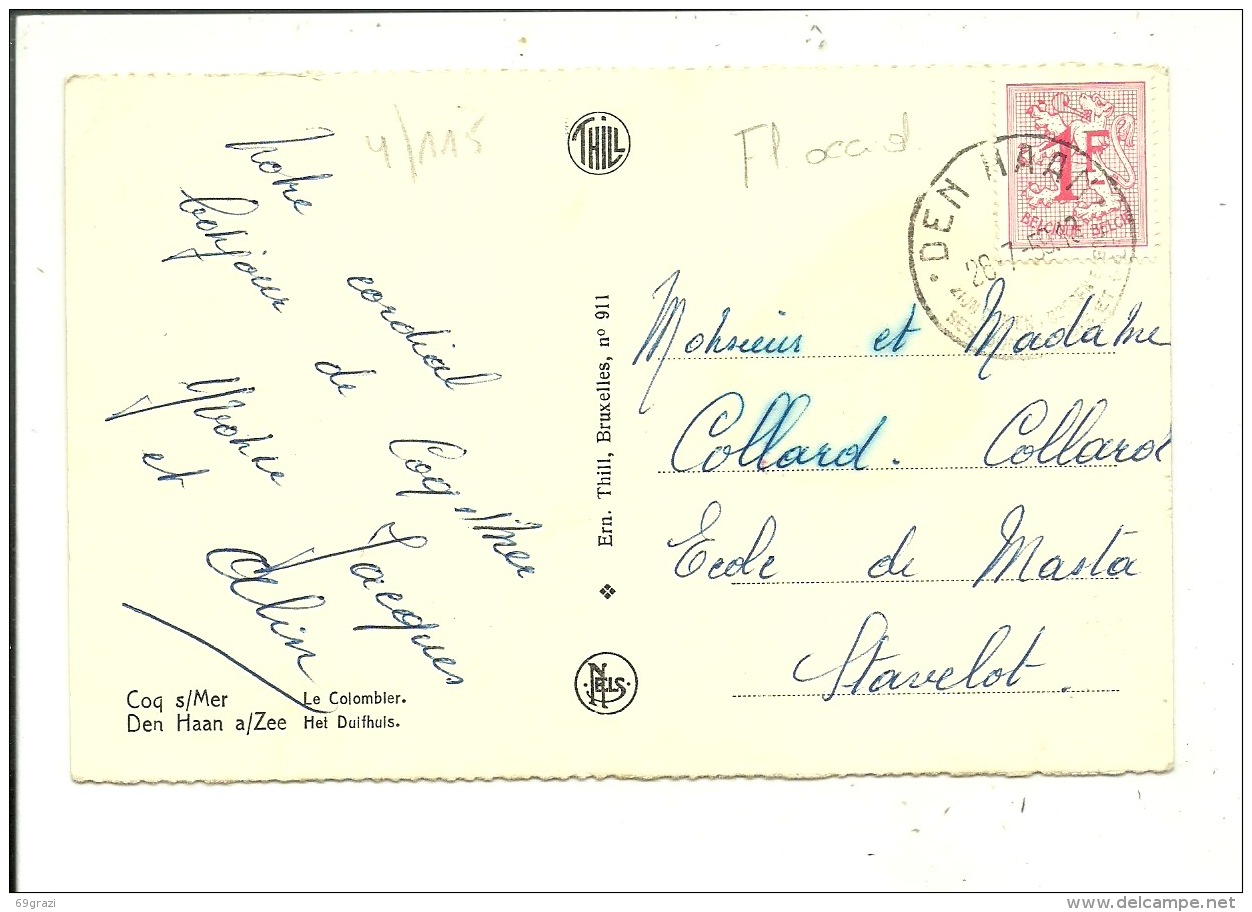 Notre cordial
bonjour de Coq s/Mer
Yvonne Jacques
et Alin
4/115
THILL
Fl. occid.
1F
BELGIQUE BELGIE
DEN HAAN
Monsieur et Madame
Collard. Collard
Ecole de Masta
Stavelot.
Ern. Thill, Bruxelles, nº 911
NELS
Coq s/Mer Le Colombier.
Den Haan a/Zee Het Duifhuis.
69grazi
www.delcampe.net